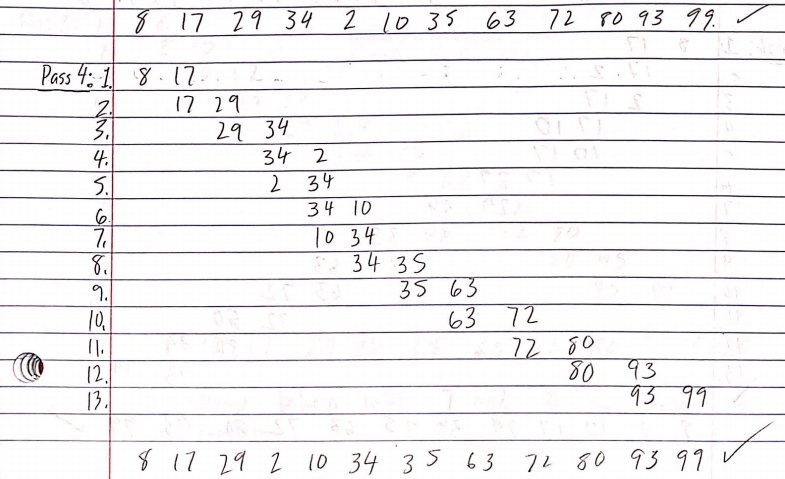 8 17 29 34 2 10 35 63 72 80 93 99 ✓
Pass 4: 1. 8 17
2. 17 29
3. 29 34
4. 34 2
5. 2 34
6. 34 10
7. 10 34
8. 34 35
9. 35 63
10. 63 72
11. 72 80
12. 80 93
13. 93 99
8 17 29 2 10 34 35 63 72 80 93 99 ✓